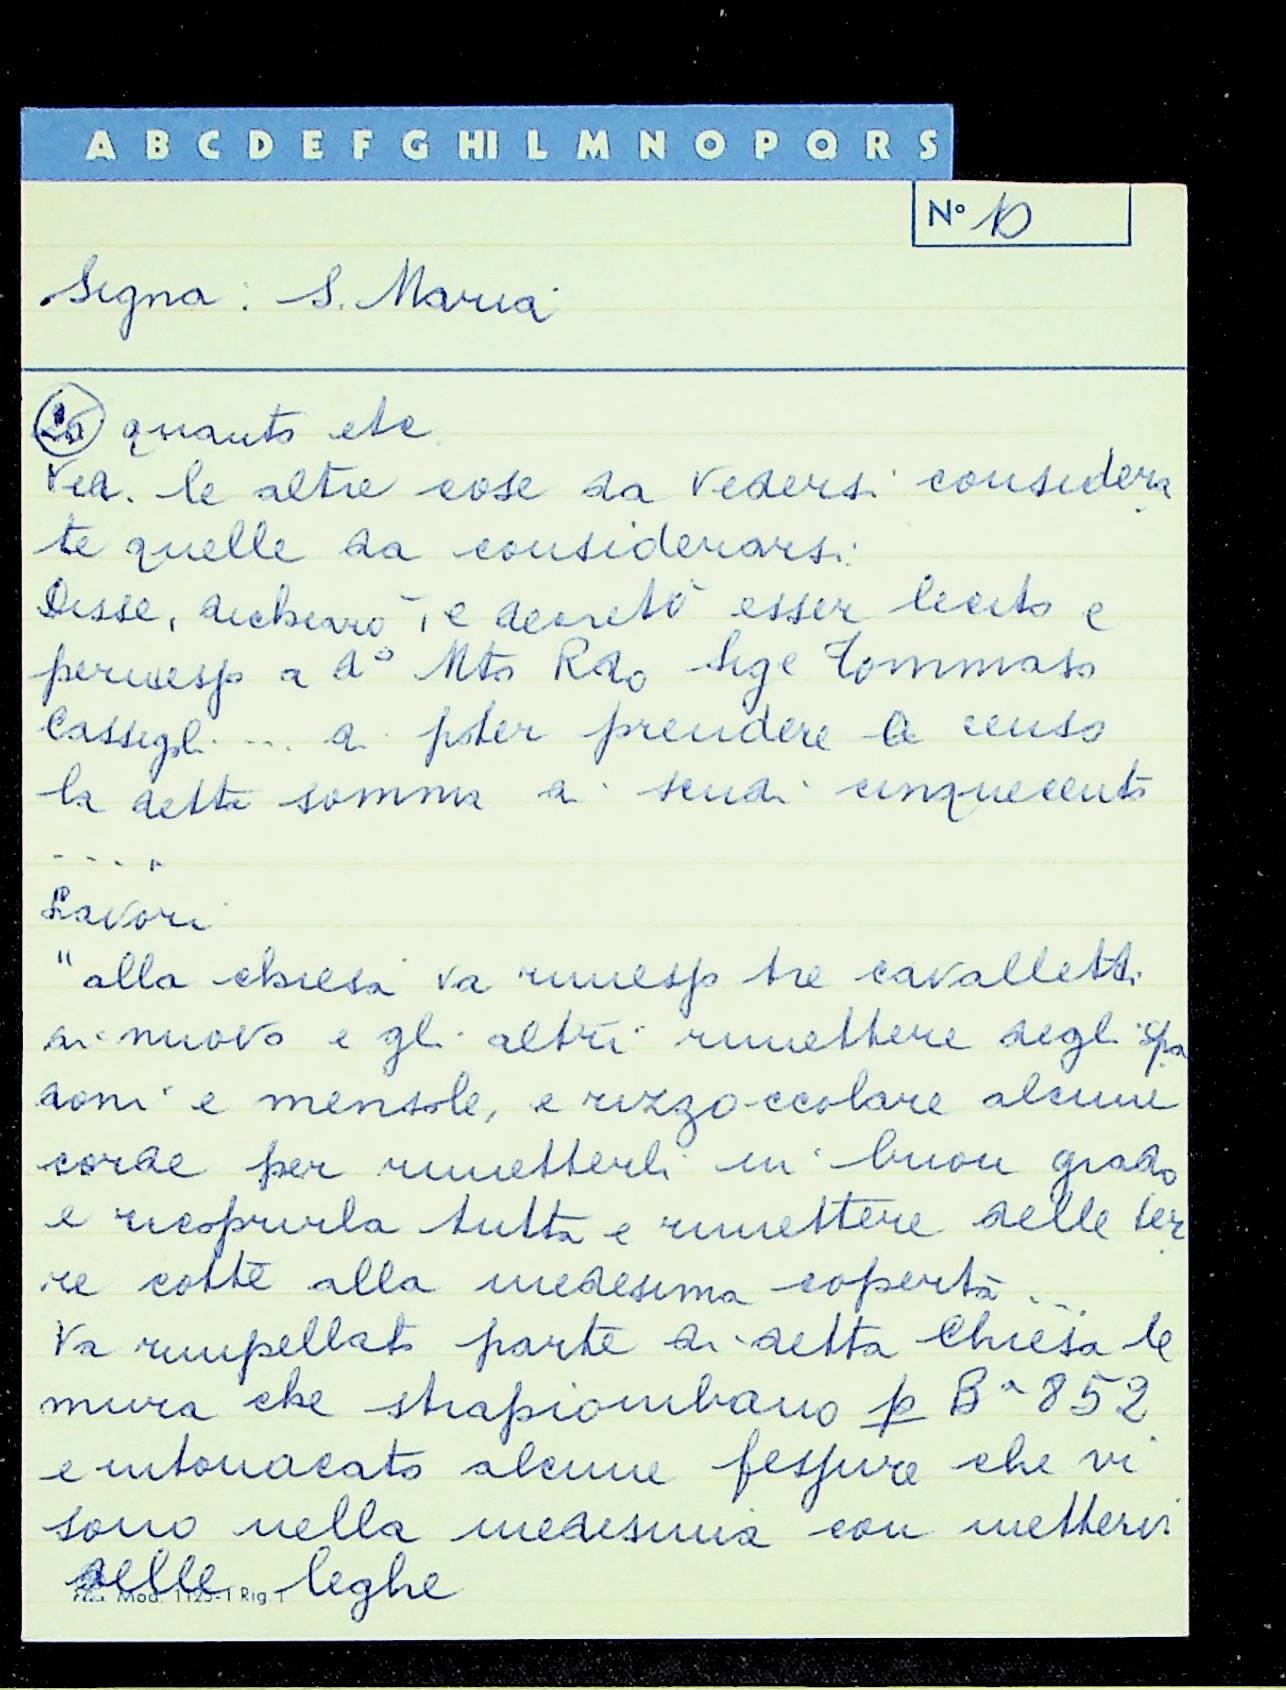 A B C D E F G HI L M N O P Q R S
N° 10
Signa: S. Maria
quanto etc
Ved. le altre cose da vedersi considera
te quelle da considerarsi
Disse, dichiarò, e decretò esser lecito e
permesso a d° Mto Rdo Sige Tommaso
Cassigli ... di poter prendere a censo
la detta somma di scudi cinquecento
....
Lavori
"alla chiesa va rimesso tre cavalletti
di nuovo e gli altri rimettere degli spa
doni e mensole, e rizzoccolare alcune
corde per rimetterli in buon grado
e ricoprirla tutta e rimettere delle ter
re cotte alla medesima coperta ...
Va rimpellato parte di detta Chiesa le
mura che strapiombano p Ba 852
e intonacato alcune fessure che vi
sono nella medesima con mettervi
delle leghe
Mod. 1125-1 Rig. 1